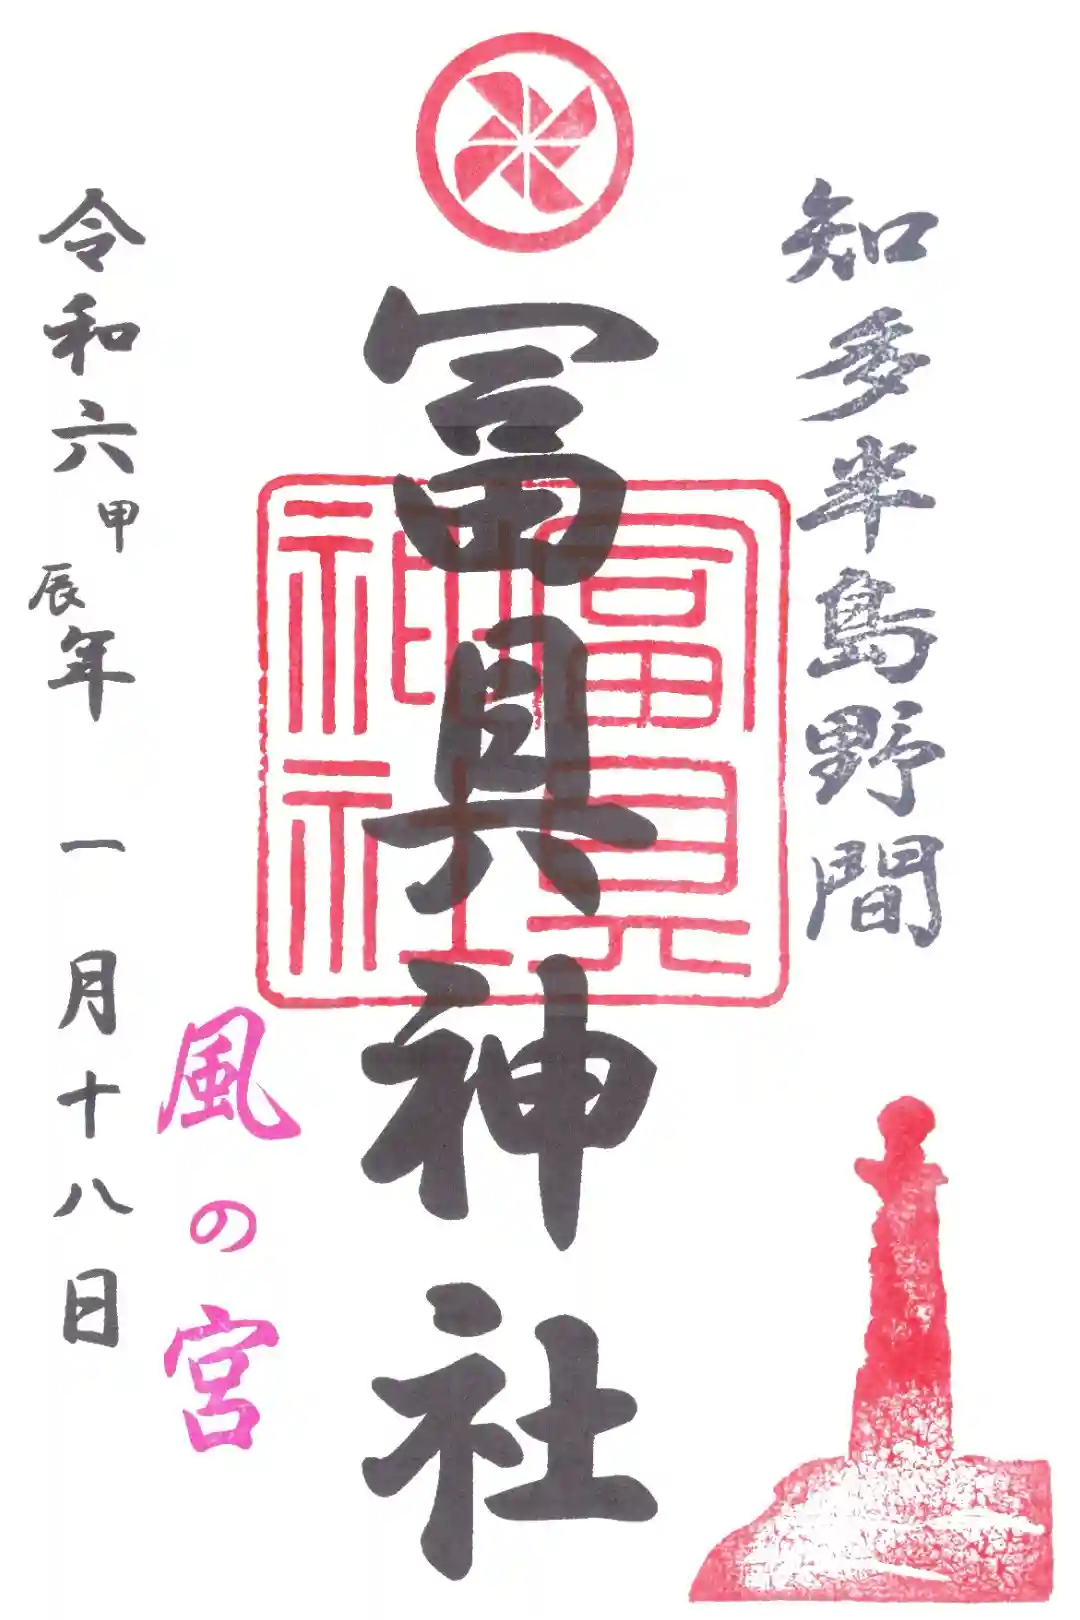 知多半島野間
冨具神社
富具
神社
風の宮
令和六甲辰年 一月十八日